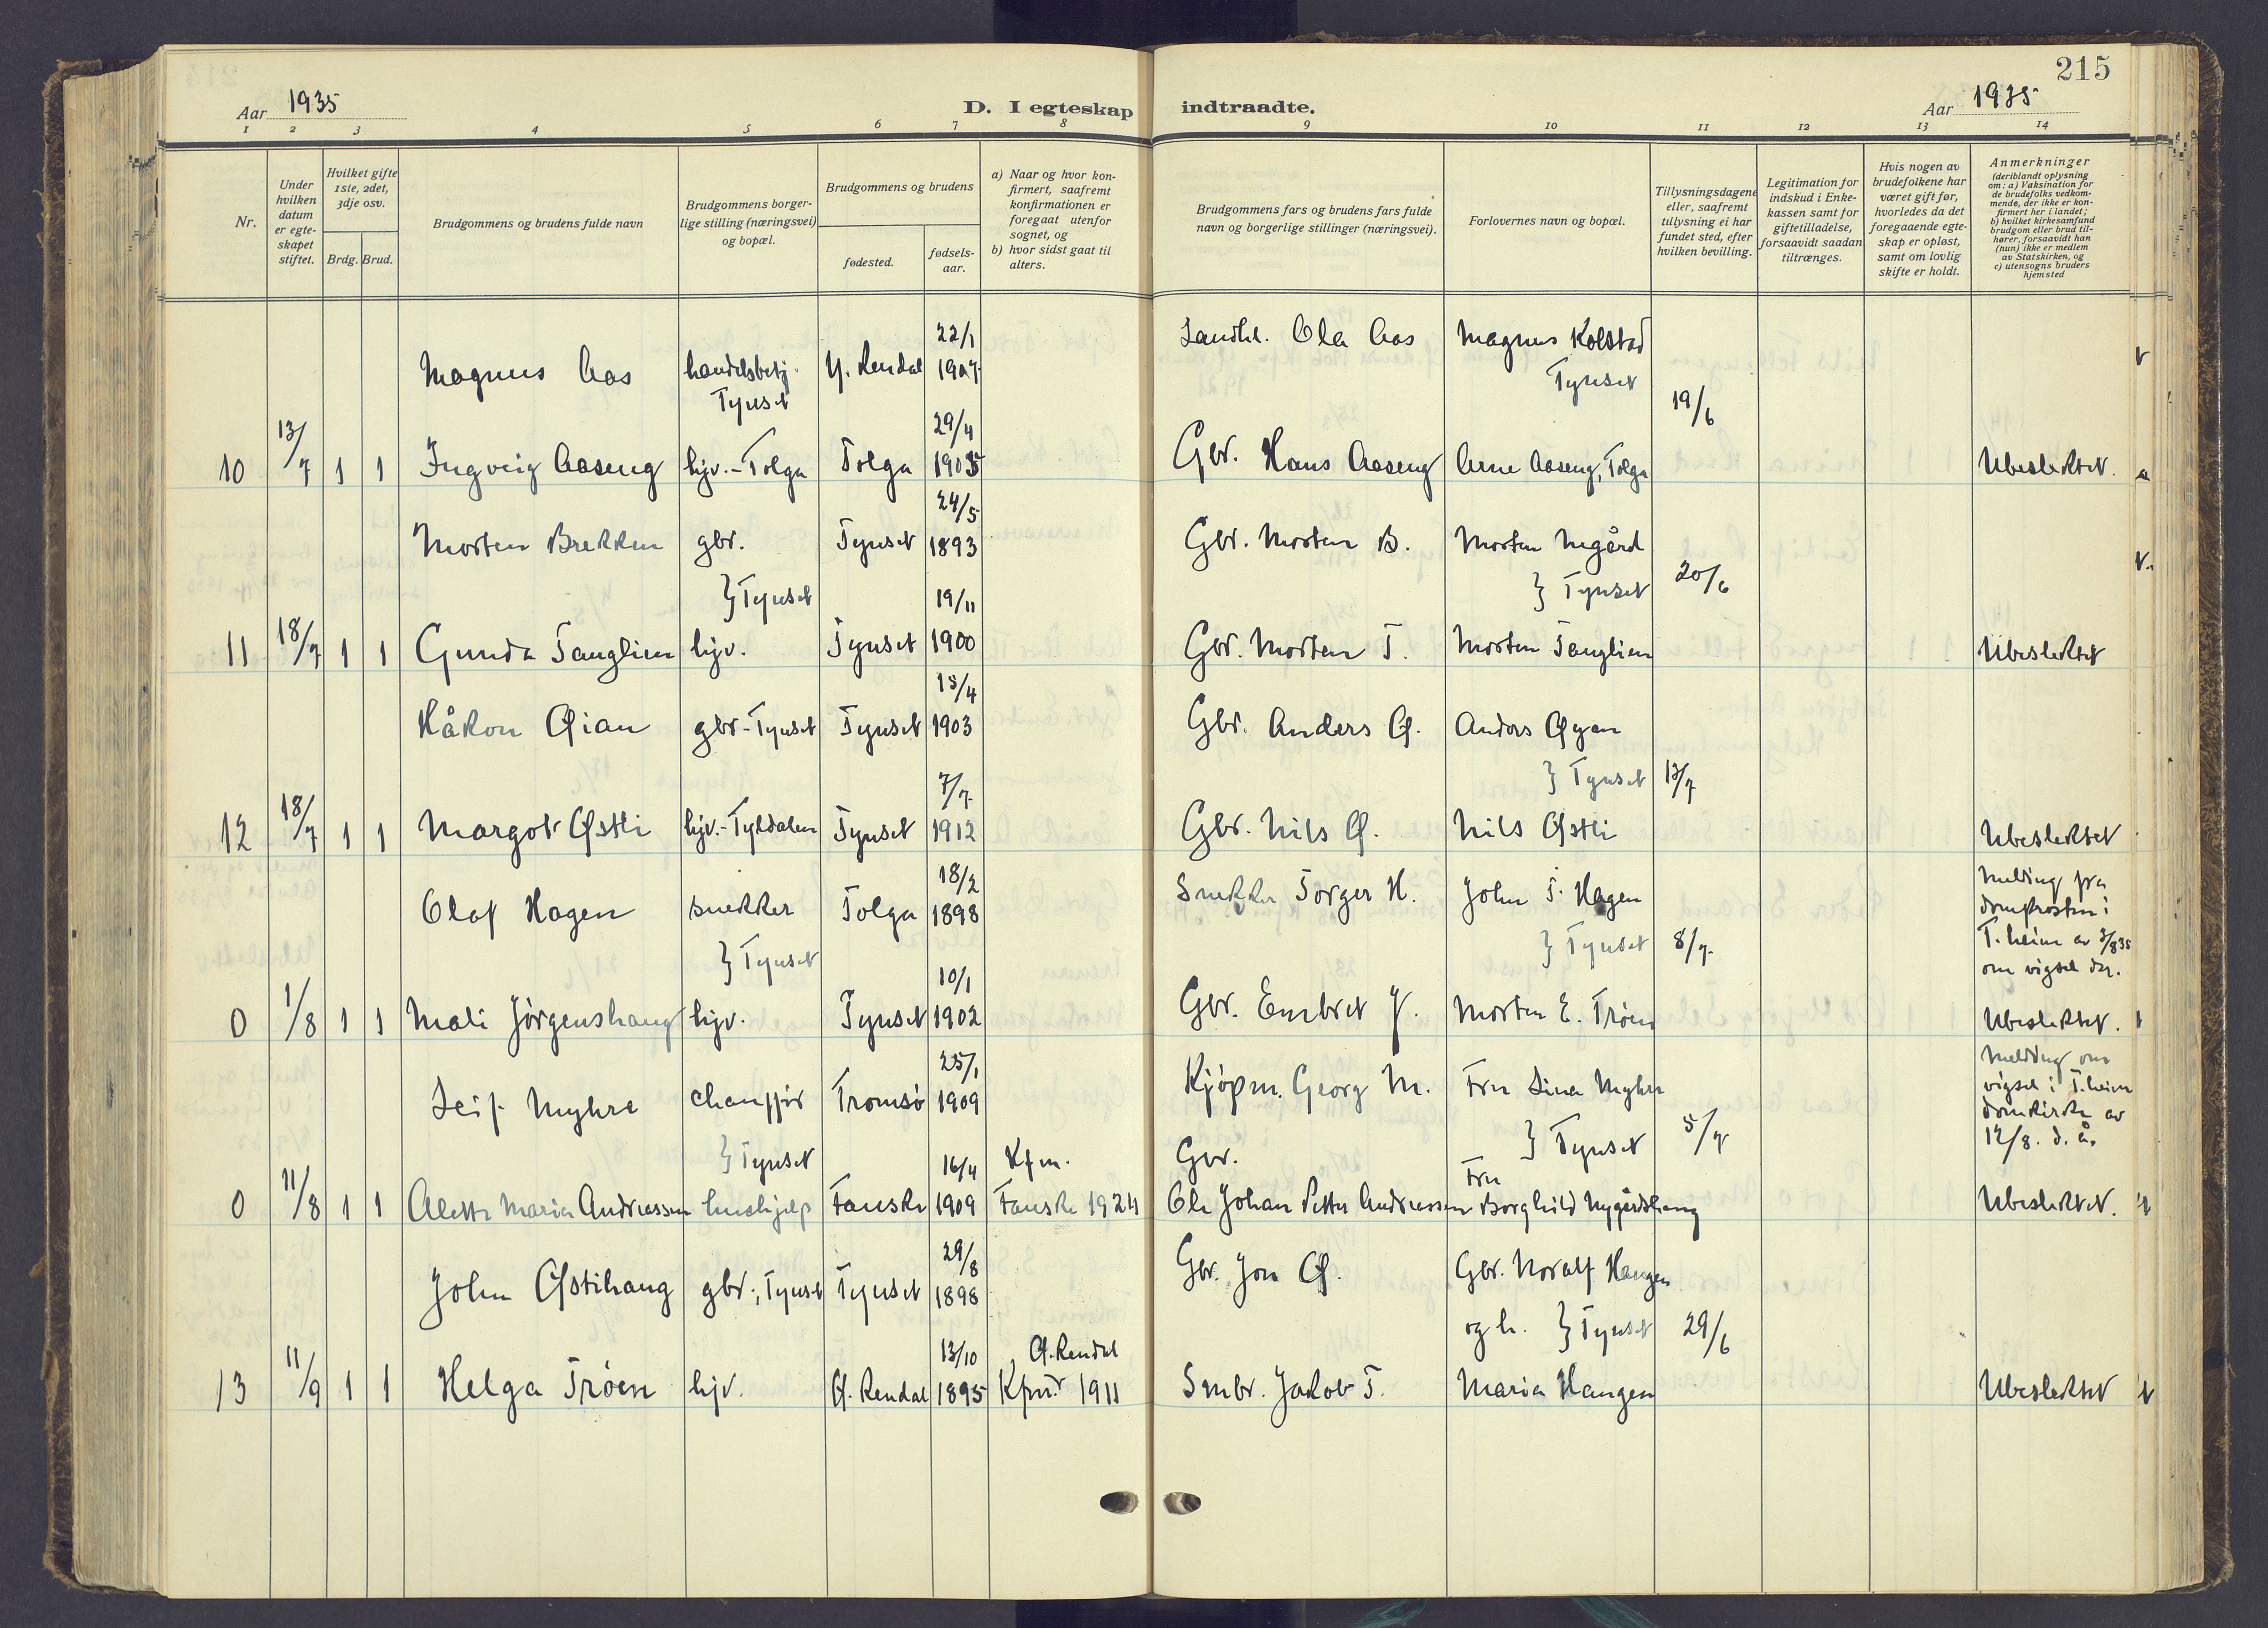 215
Aar 1935
D. I egteskap indtraadte.
Aar 1935
1 2 3 4 5 6 7 8 9 10 11 12 13 14
Nr.
Under hvilken datum er egteskapet stiftet.
Hvilket gifte 1ste, 2det, 3dje osv.
Brdg. Brud.
Brudgommens og brudens fulde navn
Brudgommens borgerlige stilling (næringsvei) og bopæl.
Brudgommens og brudens
fødested.
fødselsaar.
a) Naar og hvor konfirmert, saafremt konfirmationen er foregaat utenfor sognet, og
b) hvor sidst gaat til alters.
Brudgommens fars og brudens fars fulde navn og borgerlige stillinger (næringsvei).
Forlovernes navn og bopæl.
Tillysningsdagene eller, saafremt tillysning ei har fundet sted, efter hvilken bevilling.
Legitimation for indskud i Enkekassen samt for giftetilladelse, forsaavidt saadan tiltrænges.
Hvis nogen av brudefolkene har været gift før, hvorledes da det foregaaende egteskap er opløst, samt om lovlig skifte er holdt.
Anmerkninger (deriblandt oplysning om: a) Vaksination for de brudefolks vedkommende, der ikke er konfirmert her i landet; b) hvilket kirkesamfund brudgom eller brud tilhører, forsaavidt han (hun) ikke er medlem av Statskirken, og c) utensogns bruders hjemsted
22/1
Magnus Aas handelsbetj. Y. Rendal 1907 Landh. Ola Aas Magnus Kolstad
Tynset Tynset
13/7 29/4 19/6
10 1 1 Ingveig Aaseng hjv.-Tolga Tolga 1905 Gbr. Hans Aaseng Arne Aaseng, Tolga Ubeslektet.
24/5
Morten Brekken gbr. Tynset 1893 Gbr. Morten B. Morten Negård
} Tynset 19/11 } Tynset 20/6
11 18/7 1 1 Gunda Tanglien hjv. Tynset 1900 Gbr. Morten T. Morten Tanglien Ubeslektet
15/4
Håkon Øian gbr-Tynset Tynset 1903 Gbr. Anders Ø. Anders Øyan
7/7 } Tynset 13/7
12 18/7 1 1 Margot Østli hjv.-Tyldalen Tynset 1912 Gbr. Nils Ø. Nils Østli Ubeslektet
18/2 Melding fra
Olaf Hagen snekker Tolga 1898 Snekker Torger H. John T. Hagen domprosten i
} Tynset } Tynset 8/7 T.heim av 3/8 35
10/1 om vigsel der.
0 1/8 1 1 Mali Jørgenshaug hjv. Tynset 1902 Gbr. Embret J. Morten E. Trøen Ubeslektet.
25/1 Melding om
Leif Myhre chauffør Tromsø 1909 Kjøpm. Georg M. Fru Lina Myhre vigsel i T.heim
domkirke av
} Tynset 16/4 Kfm. Gbr. } Tynset 5/7 12/8. d. å.
Fru
0 11/8 1 1 Alette Maria Andreassen hushjelp Fauske 1909 Fauske 1924 Ole Johan Petter Andreassen Borghild Nygårdshaug Ubeslektet.
29/8
John Østihaug gbr., Tynset Tynset 1898 Gbr. Jon Ø. Gbr. Noralf Haugen
og h. } Tynset 29/6
13/10 Ø. Rendal
13 11/9 1 1 Helga Trøen hjv. Ø. Rendal 1895 Kfm. 1911 Smbr. Jakob T. Maria Haugen Ubeslektet